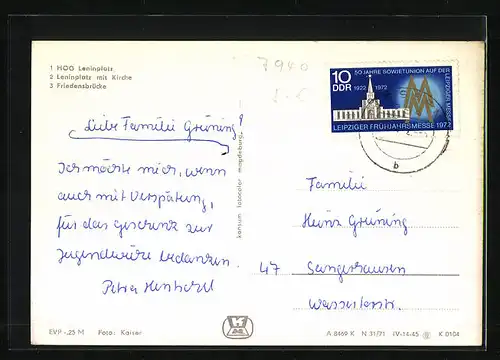 1 HOG Leninplatz
2 Leninplatz mit Kirche
3 Friedensbrücke
7940
10
DDR
50 JAHRE SOWJETUNION AUF DER LEIPZIGER MESSE
1922 1972
LEIPZIGER FRÜHJAHRSMESSE 1972
b
Liebe Familie Grüning!
Ich möchte mich, wenn
auch mit Verspätung,
für das Geschenk zur
Jugendweihe bedanken.
Petra
konsum fotocolor magdeburg
Familie
Heinz Grüning
47 Sangerhausen
Wasserstr.
EVP -,25 M Foto: Kaiser
A 8469 K N 31/71 IV-14-45 K 0104